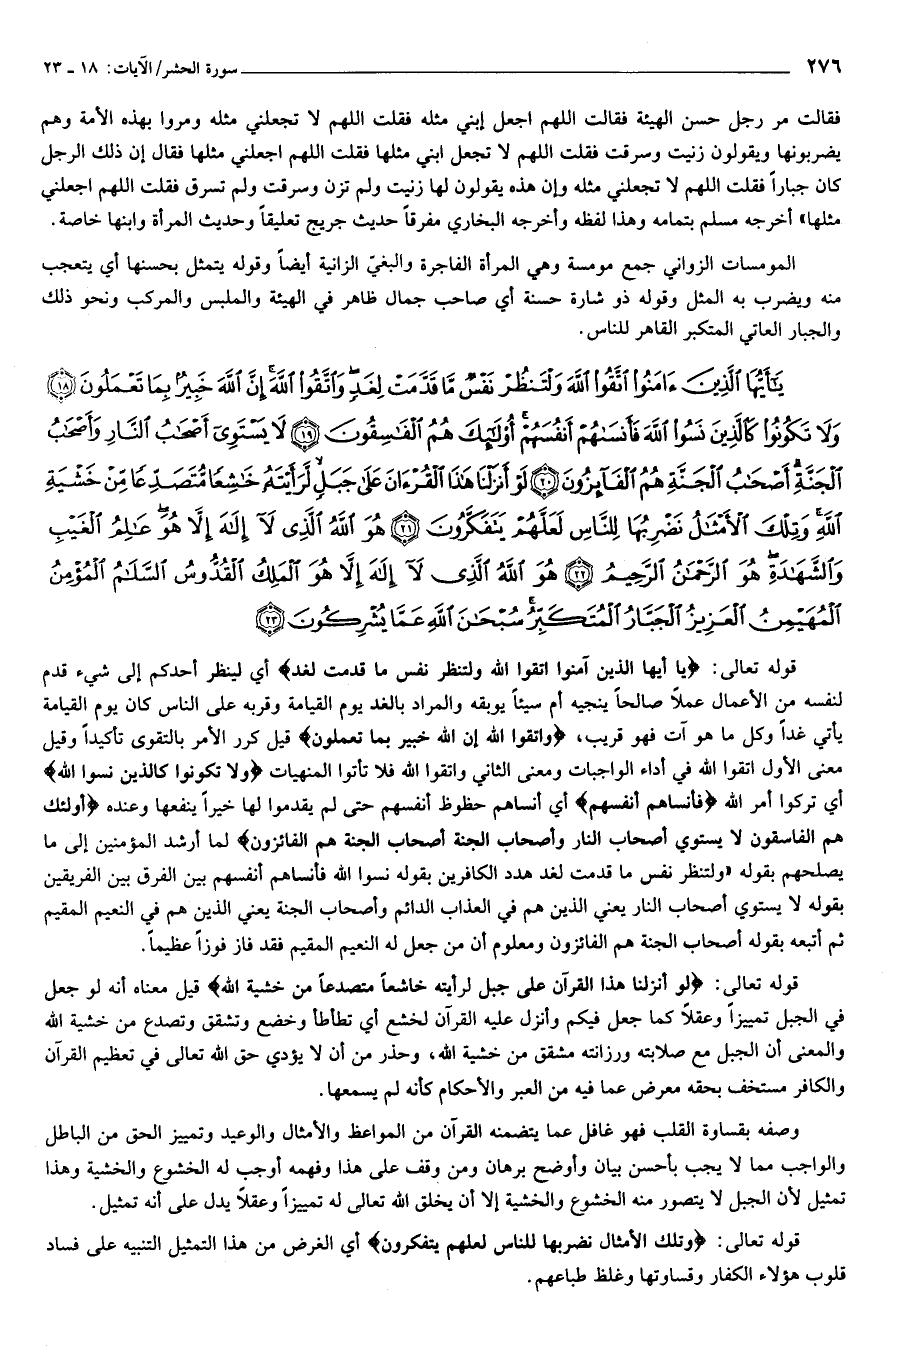 ٢٧٦ سورة الحشر/ الآيات: ١٨ ـ ٢٣
فقالت مر رجل حسن الهيئة فقالت اللهم اجعل إبني مثله فقلت اللهم لا تجعلني مثله ومروا بهذه الأمة وهم
يضربونها ويقولون زنيت وسرقت فقلت اللهم لا تجعل ابني مثلها فقلت اللهم اجعلني مثلها فقال إن ذلك الرجل
كان جباراً فقلت اللهم لا تجعلني مثله وإن هذه يقولون لها زنيت ولم تزن وسرقت ولم تسرق فقلت اللهم اجعلني
مثلها» أخرجه مسلم بتمامه وهذا لفظه وأخرجه البخاري مفرقاً حديث جريج تعليقاً وحديث المرأة وابنها خاصة.
المومسات الزواني جمع مومسة وهي المرأة الفاجرة والبغيّ الزانية أيضاً وقوله يتمثل بحسنها أي يتعجب
منه ويضرب به المثل وقوله ذو شارة حسنة أي صاحب جمال ظاهر في الهيئة والملبس والمركب ونحو ذلك
والجبار العاتي المتكبر القاهر للناس.
يَٰٓأَيُّهَا ٱلَّذِينَ ءَامَنُوا۟ ٱتَّقُوا۟ ٱللَّهَ وَلْتَنظُرْ نَفْسٌ مَّا قَدَّمَتْ لِغَدٍ ۖ وَٱتَّقُوا۟ ٱللَّهَ ۚ إِنَّ ٱللَّهَ خَبِيرٌۢ بِمَا تَعْمَلُونَ ١٨
وَلَا تَكُونُوا۟ كَٱلَّذِينَ نَسُوا۟ ٱللَّهَ فَأَنسَىٰهُمْ أَنفُسَهُمْ ۚ أُو۟لَٰٓئِكَ هُمُ ٱلْفَٰسِقُونَ ١٩ لَا يَسْتَوِىٓ أَصْحَٰبُ ٱلنَّارِ وَأَصْحَٰبُ
ٱلْجَنَّةِ ۚ أَصْحَٰبُ ٱلْجَنَّةِ هُمُ ٱلْفَآئِزُونَ ٢٠ لَوْ أَنزَلْنَا هَٰذَا ٱلْقُرْءَانَ عَلَىٰ جَبَلٍ لَّرَأَيْتَهُۥ خَٰشِعًا مُّتَصَدِّعًا مِّنْ خَشْيَةِ
ٱللَّهِ ۚ وَتِلْكَ ٱلْأَمْثَٰلُ نَضْرِبُهَا لِلنَّاسِ لَعَلَّهُمْ يَتَفَكَّرُونَ ٢١ هُوَ ٱللَّهُ ٱلَّذِى لَآ إِلَٰهَ إِلَّا هُوَ ۖ عَٰلِمُ ٱلْغَيْبِ
وَٱلشَّهَٰدَةِ ۖ هُوَ ٱلرَّحْمَٰنُ ٱلرَّحِيمُ ٢٢ هُوَ ٱللَّهُ ٱلَّذِى لَآ إِلَٰهَ إِلَّا هُوَ ٱلْمَلِكُ ٱلْقُدُّوسُ ٱلسَّلَٰمُ ٱلْمُؤْمِنُ
ٱلْمُهَيْمِنُ ٱلْعَزِيزُ ٱلْجَبَّارُ ٱلْمُتَكَبِّرُ ۚ سُبْحَٰنَ ٱللَّهِ عَمَّا يُشْرِكُونَ ٢٣
قوله تعالى: ﴿يا أيها الذين آمنوا اتقوا الله ولتنظر نفس ما قدمت لغد﴾ أي لينظر أحدكم إلى شيء قدم
لنفسه من الأعمال عملاً صالحاً ينجيه أم سيئاً يوبقه والمراد بالغد يوم القيامة وقربه على الناس كان يوم القيامة
يأتي غداً وكل ما هو آت فهو قريب، ﴿واتقوا الله إن الله خبير بما تعملون﴾ قيل كرر الأمر بالتقوى تأكيداً وقيل
معنى الأول اتقوا الله في أداء الواجبات ومعنى الثاني واتقوا الله فلا تأتوا المنهيات ﴿ولا تكونوا كالذين نسوا الله﴾
أي تركوا أمر الله ﴿فأنساهم أنفسهم﴾ أي أنساهم حظوظ أنفسهم حتى لم يقدموا لها خيراً ينفعها وعنده ﴿أولئك
هم الفاسقون لا يستوي أصحاب النار وأصحاب الجنة أصحاب الجنة هم الفائزون﴾ لما أرشد المؤمنين إلى ما
يصلحهم بقوله «ولتنظر نفس ما قدمت لغد هدد الكافرين بقوله نسوا الله فأنساهم أنفسهم بين الفرق بين الفريقين
بقوله لا يستوي أصحاب النار يعني الذين هم في العذاب الدائم وأصحاب الجنة يعني الذين هم في النعيم المقيم
ثم أتبعه بقوله أصحاب الجنة هم الفائزون ومعلوم أن من جعل له النعيم المقيم فقد فاز فوزاً عظيماً.
قوله تعالى: ﴿لو أنزلنا هذا القرآن على جبل لرأيته خاشعاً متصدعاً من خشية الله﴾ قيل معناه أنه لو جعل
في الجبل تمييزاً وعقلاً كما جعل فيكم وأنزل عليه القرآن لخشع أي تطأطأ وخضع وتشقق وتصدع من خشية الله
والمعنى أن الجبل مع صلابته ورزانته مشقق من خشية الله، وحذر من أن لا يؤدي حق الله تعالى في تعظيم القرآن
والكافر مستخف بحقه معرض عما فيه من العبر والأحكام كأنه لم يسمعها.
وصفه بقساوة القلب فهو غافل عما يتضمنه القرآن من المواعظ والأمثال والوعيد وتمييز الحق من الباطل
والواجب مما لا يجب بأحسن بيان وأوضح برهان ومن وقف على هذا وفهمه أوجب له الخشوع والخشية وهذا
تمثيل لأن الجبل لا يتصور منه الخشوع والخشية إلا أن يخلق الله تعالى له تمييزاً وعقلاً يدل على أنه تمثيل.
قوله تعالى: ﴿وتلك الأمثال نضربها للناس لعلهم يتفكرون﴾ أي الغرض من هذا التمثيل التنبيه على فساد
قلوب هؤلاء الكفار وقساوتها وغلظ طباعهم.